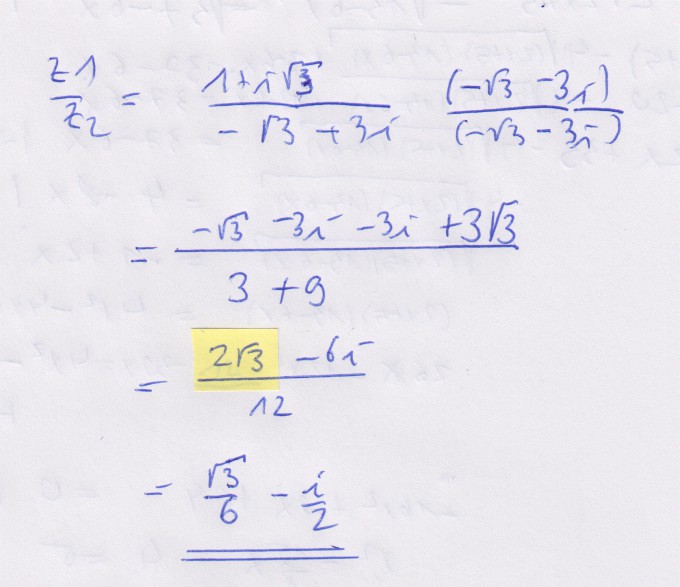 z1/z2 = (1+i√3)/(-√3+3i) (-√3-3i)/(-√3-3i)
= (-√3 -3i -3i +3√3)/(3+9)
= (2√3 -6i)/12
= √3/6 - i/2